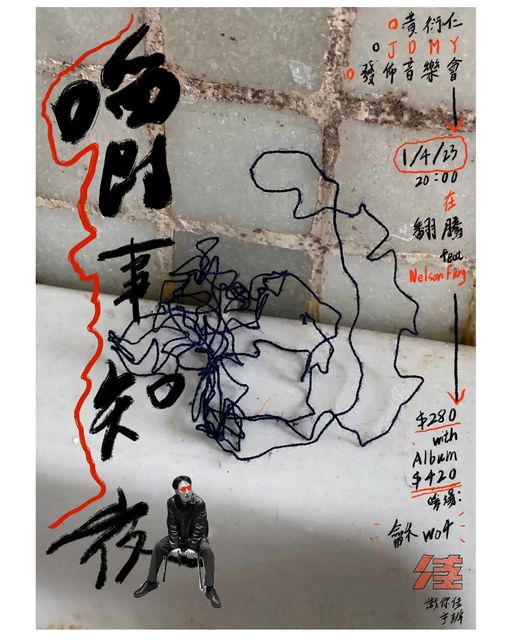 事知夜
黃衍仁
JOMY
發佈音樂會
1/4/23
20:00
在
翻騰
feat.
Nelson Fung
$280
with
Album
$420
龢 Wo4
主辦